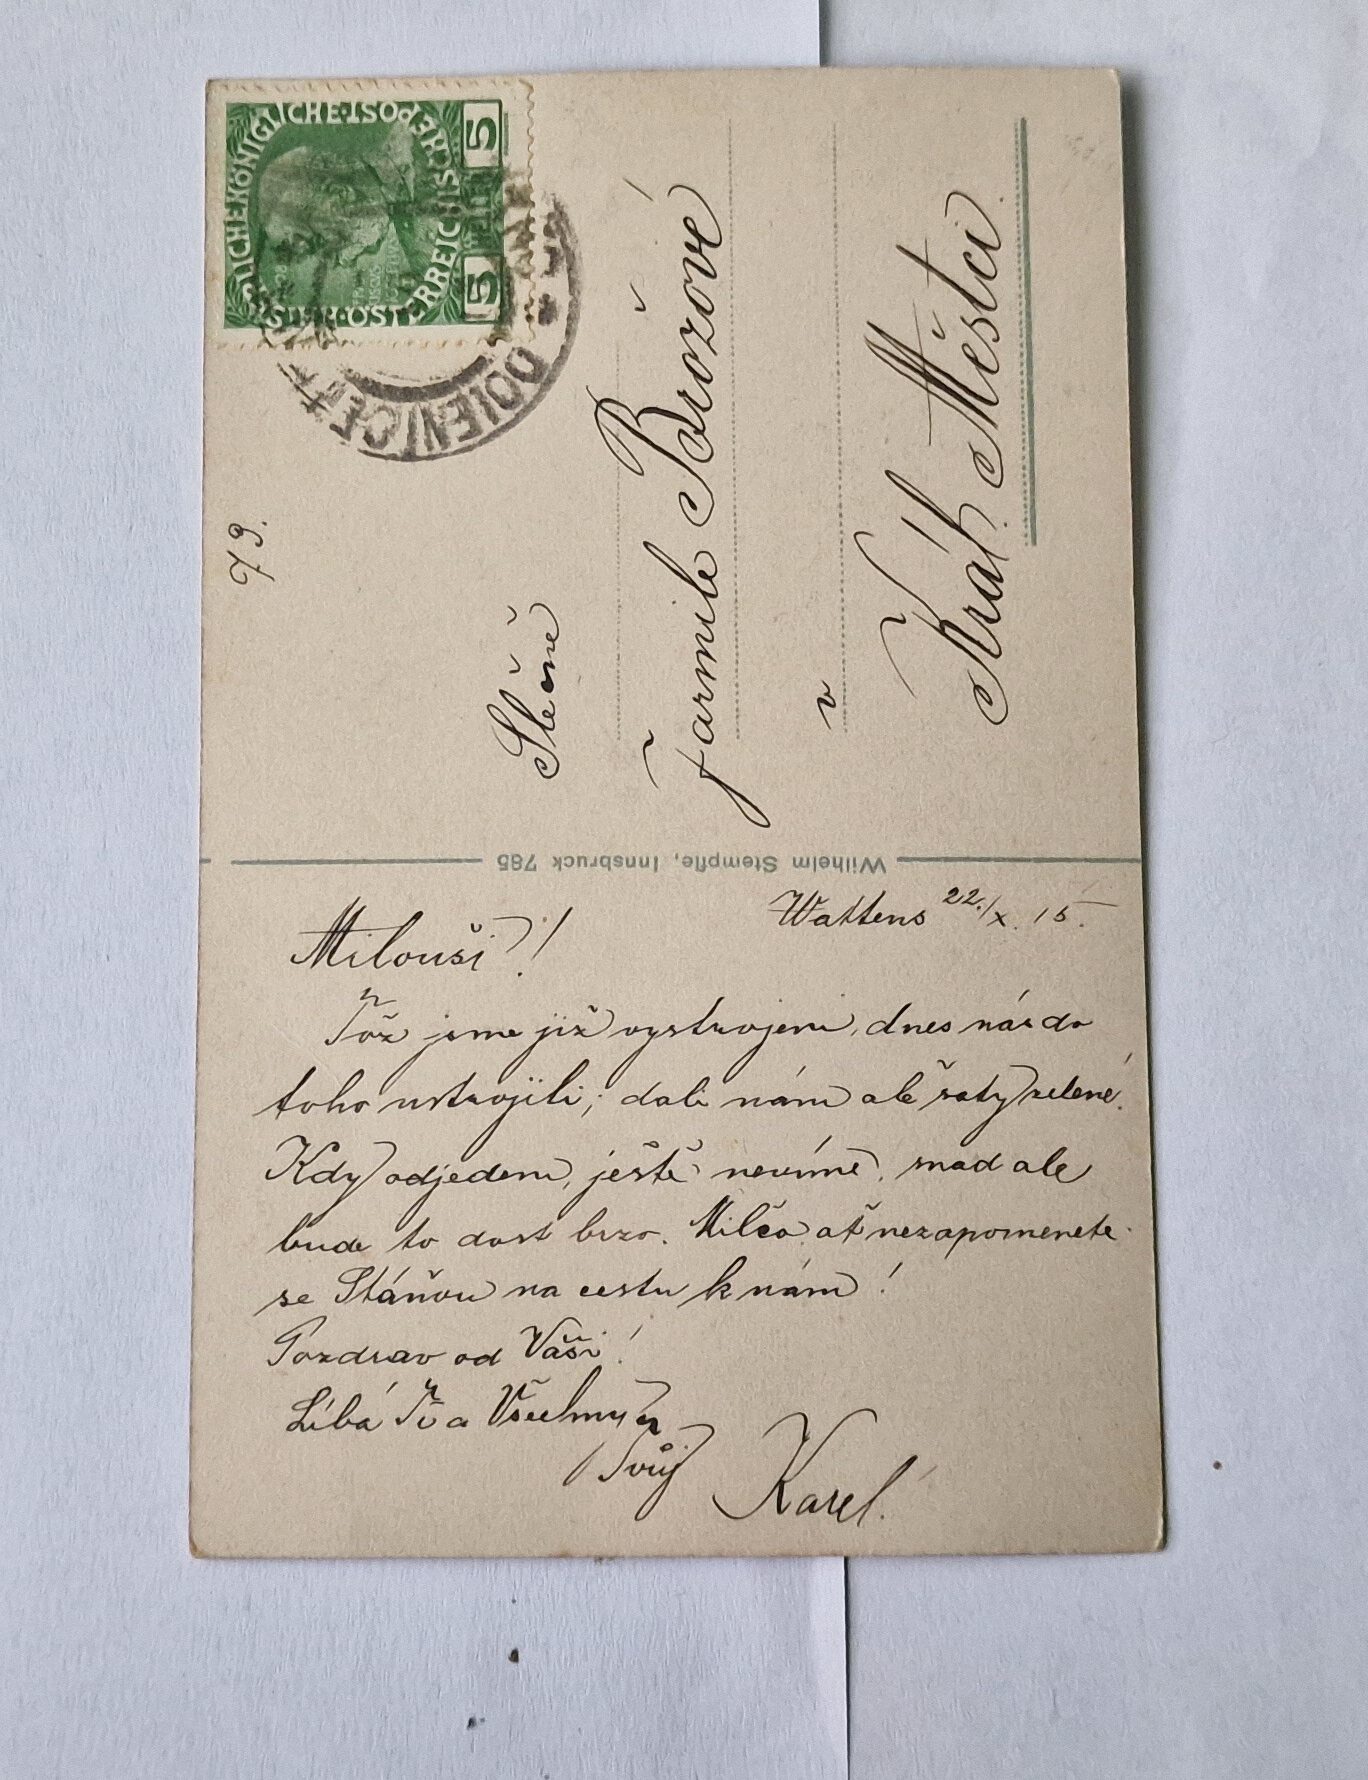 5 5
KAISERLICHE KÖNIGLICHE POST
ÖSTERREICHISCHE
DOJENICE
79.
Slečně
Jarmile Brožové
v
Král. Městci
Wilhelm Stempfle, Innsbruck 785
Wattens 22./X. 15.
Milouši!
Tož jsme již vystrojeni, dnes nás do
toho ustrojili; dali nám ale šaty zelené.
Kdy odjedem, ještě nevíme, snad ale
bude to dost brzo. Milčo, ať nezapomenete
se Stáňou na cestu k nám!
Pozdrav od Váši!
Líbá Tě a Všechny
Tvůj
Karel.